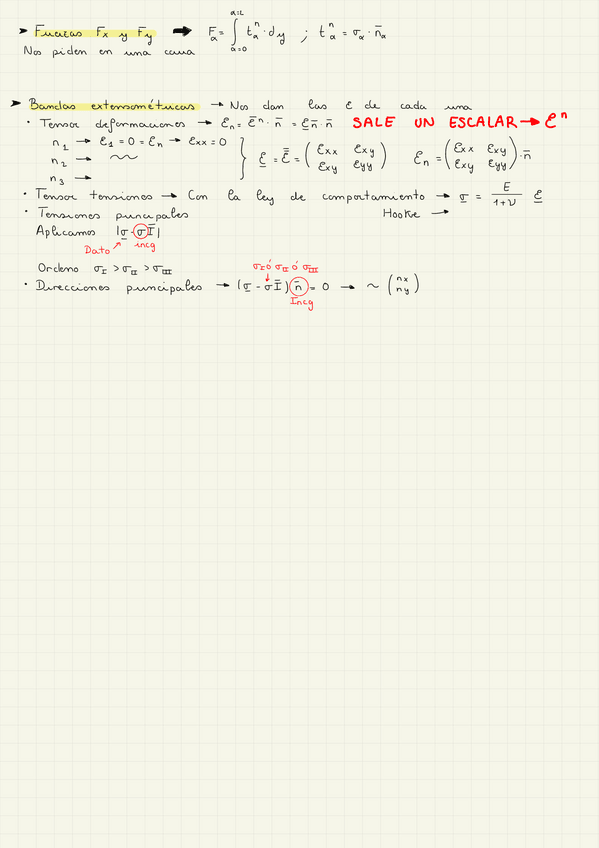 ➤ Fuerzas Fx y Fy ➡ Fₐ = ∫ₐ₌₀ᵃ⁼ᴸ tₐⁿ · dy ; tₐⁿ = σₐ · n̄ₐ
Nos piden en una cara
➤ Bandas extensométricas → Nos dan las ε de cada una
· Tensor deformaciones → εₙ = ε̄ⁿ · n̄ = ε n̄ · n̄ SALE UN ESCALAR → εⁿ
n₁ → ε₁ = 0 = εₙ → εxx = 0
n₂ → ~~
n₃ →
} ε = ε̿ = ( εxx εxy
εxy εyy ) εₙ = ( εxx εxy
εxy εyy ) · n̄
· Tensor tensiones → Con la ley de comportamiento → σ = E/(1+ν) ε
Hooke →
· Tensiones principales
Aplicamos |σ - σ Ī|
Dato ↗ incg
Ordeno σI > σII > σIII
σI ó σII ó σIII
· Direcciones principales → (σ - σ Ī) n̄ = 0 → ~ ( nx
ny )
Incg